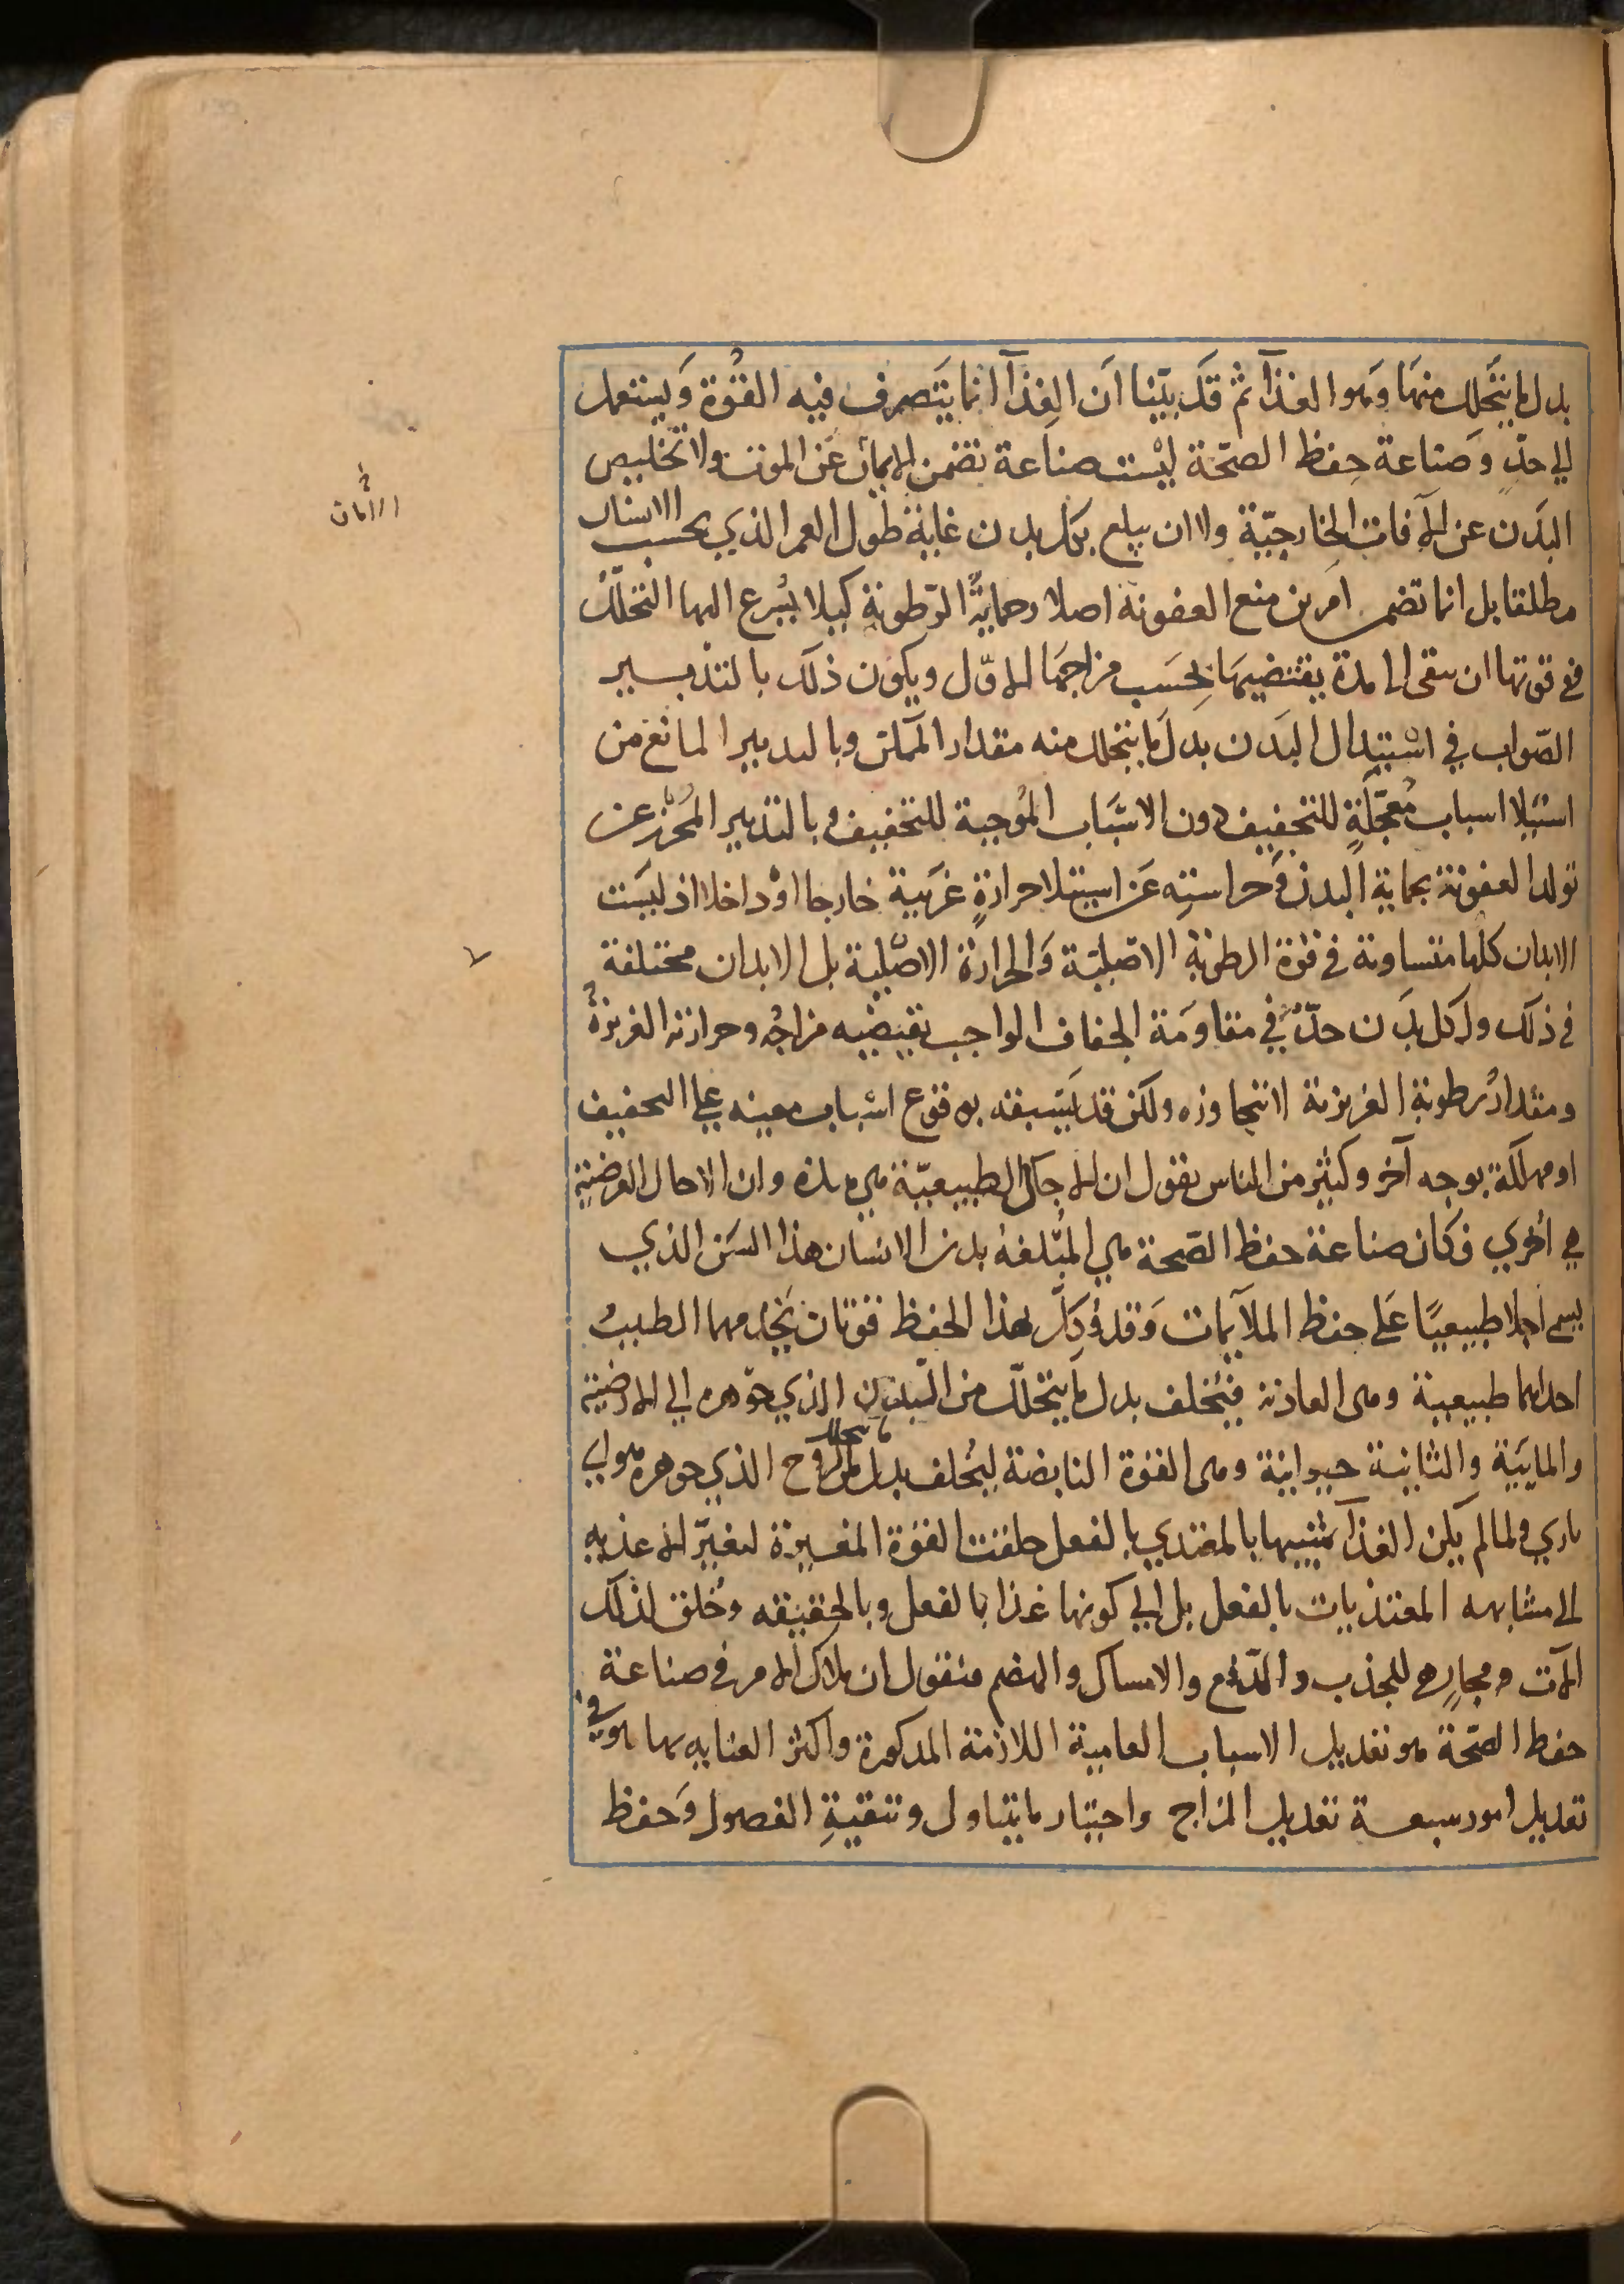 بدل ما يتحلل منها وهو الغذآ ثم قد بيّنا ان الغذآ انما يتصرف فيه القُوة ويستعمل
الي حدٍ وصناعة حِفظ الصحّة ليْست صناعة تضمن الامان عَن الموت ولا تخليص
البَدن عن الآفات الخارجيّة ولا ان يبلع بكل بدن غاية طُول العمر الذي بحسب الانسان
مطلقا بل انما تضمن امرين منع العفونة اصلا وحمايةُ الرّطوبة كيلا يُسرع اليها التحلّلُ
في قوتها ان تبقى الى مدة يقتضيهَا بحَسب مزاجهَا الاوّل ويكون ذلك بالتدبيير
الصّواب في اسْتبدال البَدن بدلَ ما يتحلل منه مقدار الممكن وبالتدبير المانع من
استيلا اسباب مُعجّلةٍ للتجفيف دون الاسْبَاب المُوجبة للتجفيف وبالتدبير المُحْرز عن
تولد العفونة بحماية البدن وحراستِه عَن استيلا حرارةٍ غَريبة خارجا اوْ داخلا اذ ليسَت
الابدان كلها متساوية في قوة الرطوبةِ الاصْليّة وَالحرارة الاصْليّة بل الابدان مختلفة
في ذلك ولكل بدَن حدّ في مقاومَة الجفاف الواجب يقتضيه مزاجُه وحرارته الغريزةُ
ومقدارُ رطوبة الغريزية لا تتجاوزه ولكن قد يَسبقه بوقوع اسْباب معينه على التجفيف
او مهلكة بوجه آخر وكثيْر من الناس يقول ان الاجال الطبيعيّة هي هذه وان الاجال العرضية
هي اُخري وكان صناعة حفظ الصّحة هي المُبْلغة بدن الانسان هذا السَن الذي
يسمى اجلا طبيعيًا عَلى حفظ الملآيمات وَقد وُكِلَّ بهذا الحفظ قوتان يَخدمهما الطبيبُ
احداهما طبيعية وهى الغاذية فيُخلف بدل ما يتحلّل من البَدن الذي جوّهره الي الارضية
والمايَية والثانية حيوانية وهى القوة النابضة ليُخلف بدل ما يتحلل من الروح الذي جوهره هوايى
نارى ولما لم يكن الغذآ شبيها بالمغتذي بالفعل خلقت القوة المغيرة لتغيّر الاغذيه
الى مشابهه المغتذيات بالفعل بل الي كونها غذا بالفعل وبالحقيقه وخُلق لذلك
الآت ومجارٍ هى للجذب والدّفع والامساك والهضم فنقول ان ملاك الامر في صناعة
حفظ الصّحة هو تعديل الاسباب العامية اللازمة المذكورة واكثر العنايه بها هو في
تعديل امور سبعة تعديل المزاج واختيار ما يتناول وتنقيةِ الفضول وَحفظ
الامان